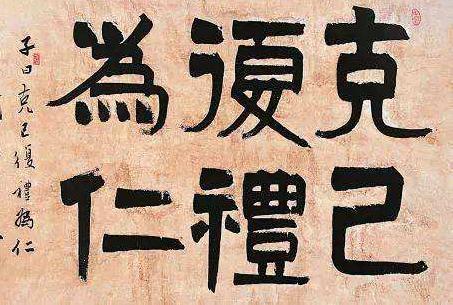 克己
復禮
為仁
子曰克己復禮為仁